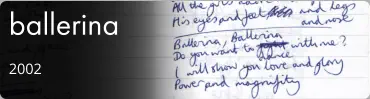 ballerina
2002
All the
His eyes and feet and legs
and nose
Ballerina, Ballerina
Do you want to with me?
dance
I will show you love and glory
Power and magnifity